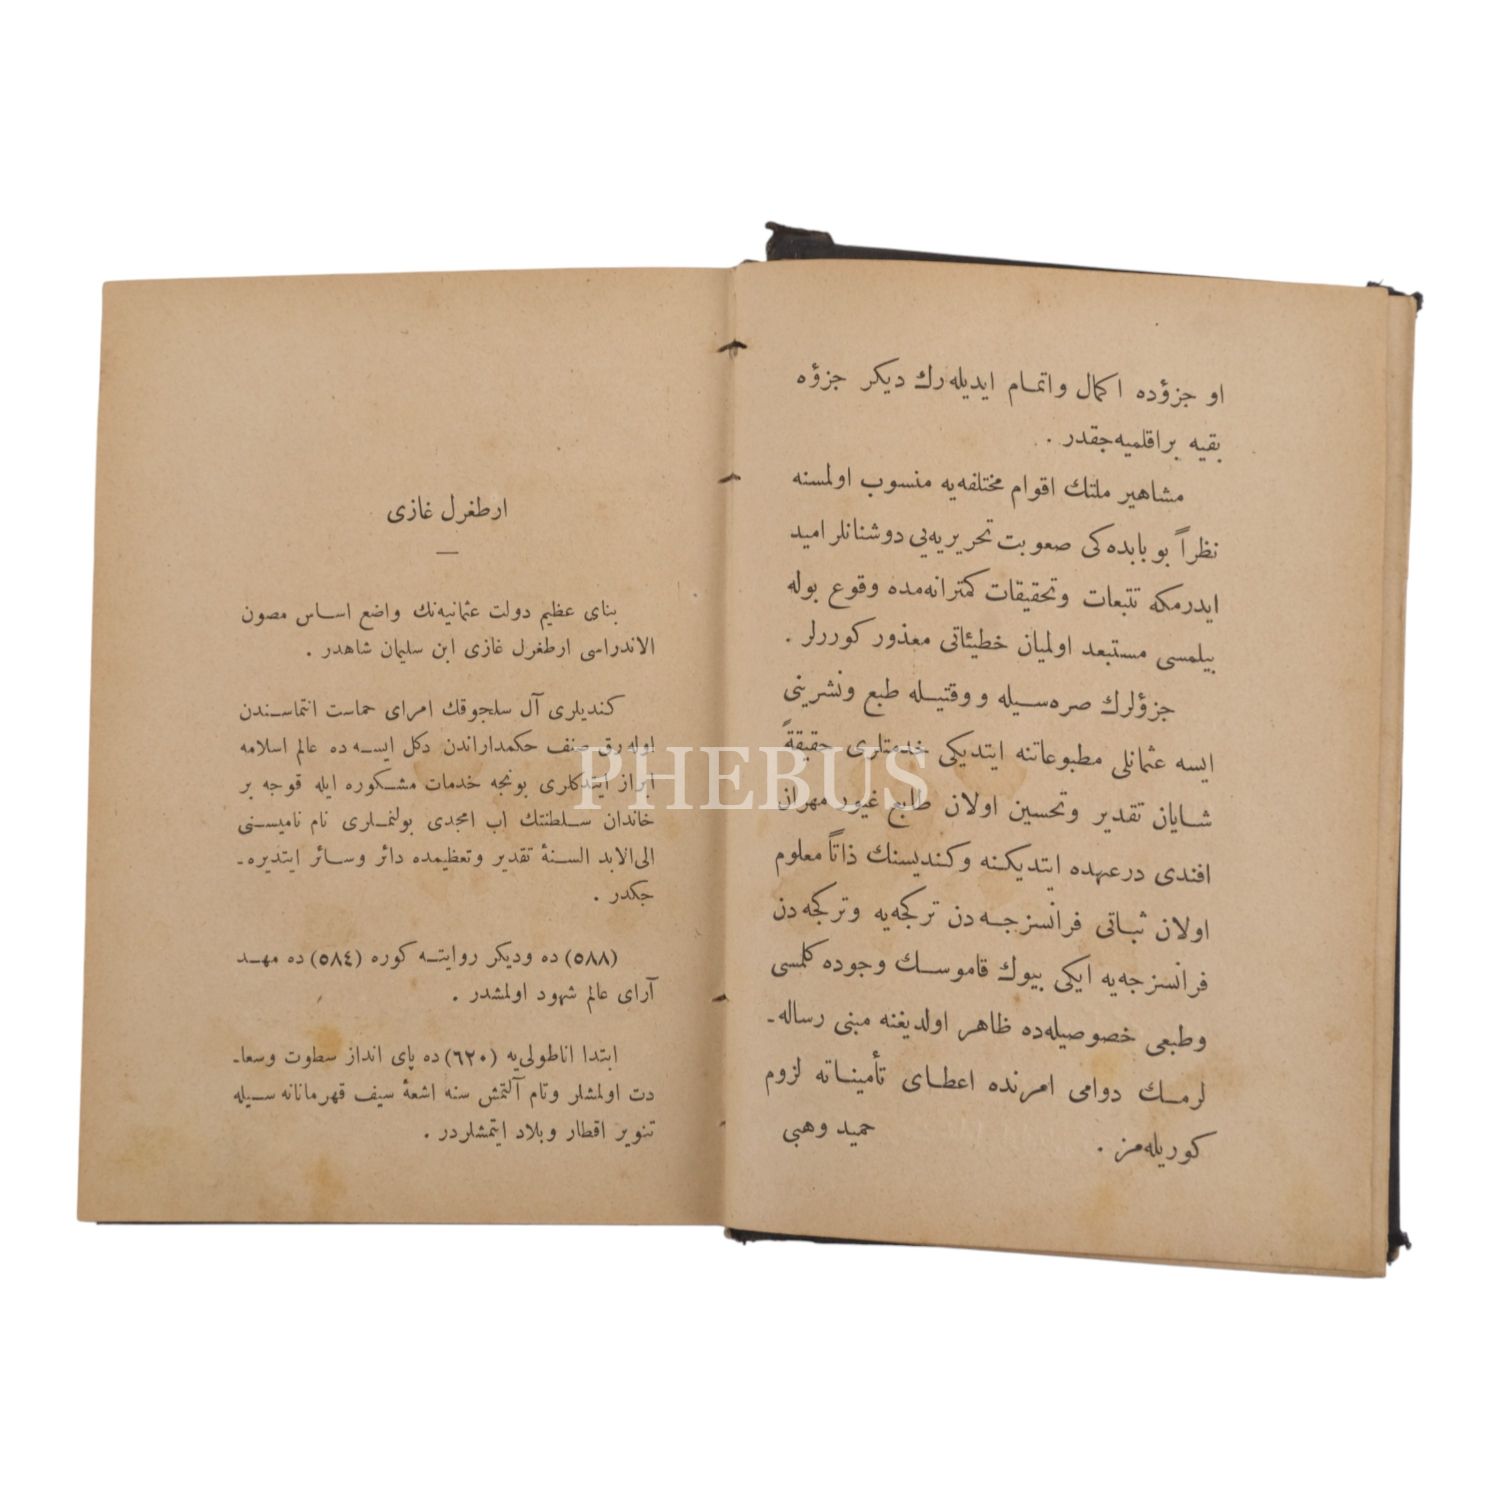 او جزؤده اكمال واتمام ايديله‌رك ديكر جزؤه
بقيه براقلميه‌جقدر .
مشاهير ملتك اقوام مختلفه‌يه منسوب اولمسنه
نظراً بو بابده‌كى صعوبت تحريريه‌يى دوشنانلر اميد
ايدرمكه تتبعات وتحقيقات كمترانه‌مده وقوع بوله
بيلمسى مستبعد اولميان خطيئاتى معذور كوررلر .
جزؤلرك صره‌سيله ووقتيله طبع ونشرينى
ايسه عثمانلى مطبوعاتنه ايتديكى خدمتلرى حقيقةً
شايان تقدير وتحسين اولان طابع غيور مهران
افندى درعهده ايتديكنه وكنديسنك ذاتاً معلوم
اولان ثباتى فرانسزجه‌دن تركجه‌يه وتركجه‌دن
فرانسزجه‌يه ايكى بيوك قاموسك وجوده كلمسى
وطبعى خصوصيله‌ده ظاهر اولديغنه مبنى رساله‌ـ
لرمك دوامى امرنده اعطاى تأميناته لزوم
كوريله‌مز .
حميد وهبى
ارطغرل غازى
بناى عظيم دولت عثمانيه‌نك واضع اساس مصون
الاندراسى ارطغرل غازى ابن سليمان شاهدر .
كنديلرى آل سلجوقك امراى حماست انتماسندن
اوله‌رق صنف حكمداراندن دكل ايسه ده عالم اسلامه
ابراز ايتدكلرى بونجه خدمات مشكوره ايله قوجه بر
خاندان سلطنتك اب امجدى بولنملرى نام ناميسنى
الى الابد السنهٔ تقدير وتعظيمده دائر وسائر ايتديره‌ـ
جكدر .
(٥٨٨) ده وديكر روايته كوره (٥٨٤) ده مهد
آراى عالم شهود اولمشدر .
ابتدا اناطولى‌يه (٦٢٠) ده پاى انداز سطوت وسعاـ
دت اولمشلر وتام آلتمش سنه اشعهٔ سيف قهرمانانه سيله
تنوير اقطار وبلاد ايتمشلردر .
PHEBUS